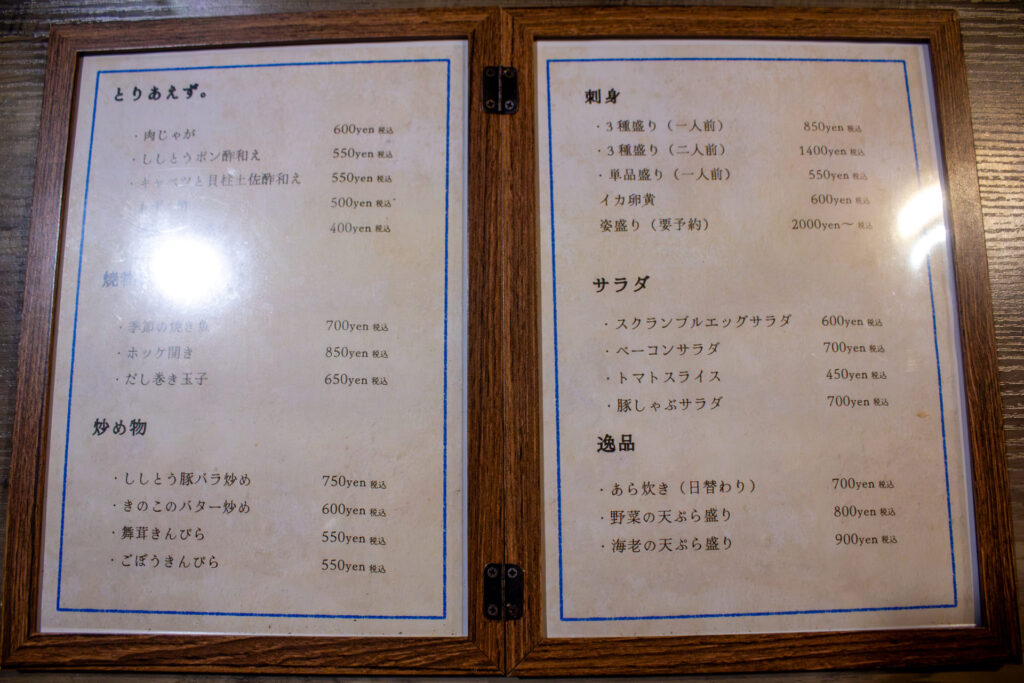 とりあえず。
・肉じゃが 600yen 税込
・ししとうポン酢和え 550yen 税込
・キャベツと貝柱土佐酢和え 550yen 税込
500yen 税込
400yen 税込
焼
・季節の焼き魚 700yen 税込
・ホッケ開き 850yen 税込
・だし巻き玉子 650yen 税込
炒め物
・ししとう豚バラ炒め 750yen 税込
・きのこのバター炒め 600yen 税込
・舞茸きんぴら 550yen 税込
・ごぼうきんぴら 550yen 税込
刺身
・3種盛り（一人前） 850yen 税込
・3種盛り（二人前） 1400yen 税込
・単品盛り（一人前） 550yen 税込
イカ卵黄 600yen 税込
姿盛り（要予約） 2000yen〜 税込
サラダ
・スクランブルエッグサラダ 600yen 税込
・ベーコンサラダ 700yen 税込
・トマトスライス 450yen 税込
・豚しゃぶサラダ 700yen 税込
逸品
・あら炊き（日替わり） 700yen 税込
・野菜の天ぷら盛り 800yen 税込
・海老の天ぷら盛り 900yen 税込